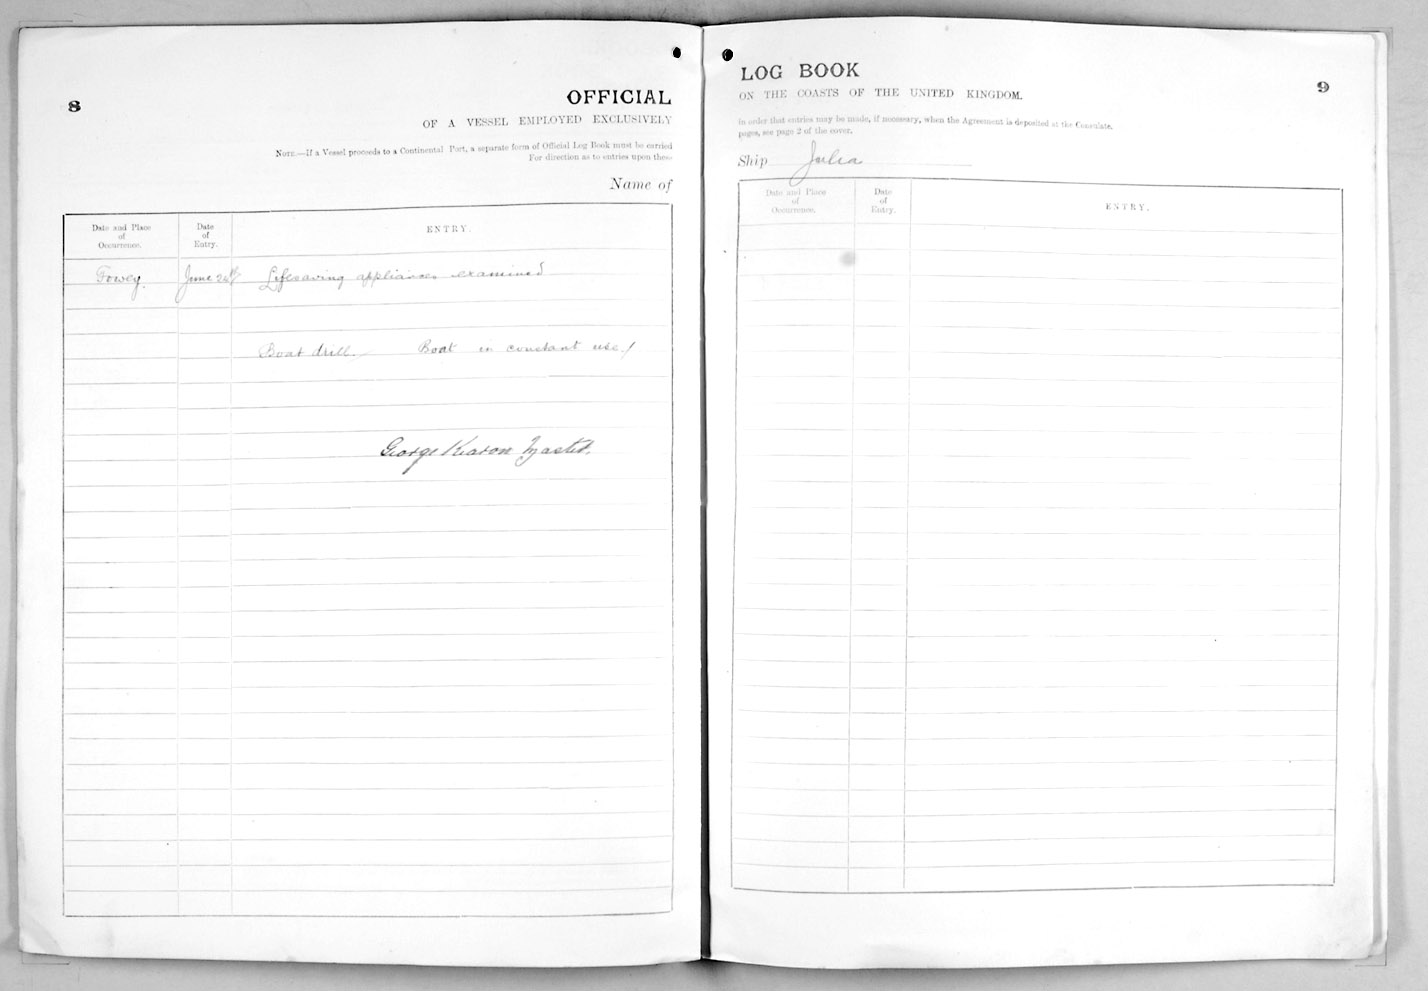 8
OFFICIAL
OF A VESSEL EMPLOYED EXCLUSIVELY
NOTE.—If a Vessel proceeds to a Continental Port, a separate form of Official Log Book must be carried
For direction as to entries upon these
Name of
Date and Place of Occurrence.
Date of Entry.
ENTRY.
Fowey. June 24th/ Lifesaving appliances examined
Boat drill. Boat in constant use./
George Kearon Master.
LOG BOOK
9
ON THE COASTS OF THE UNITED KINGDOM.
in order that entries may be made, if necessary, when the Agreement is deposited at the Consulate.
pages, see page 2 of the cover.
Ship Julia
Date and Place of Occurrence.
Date of Entry.
ENTRY.